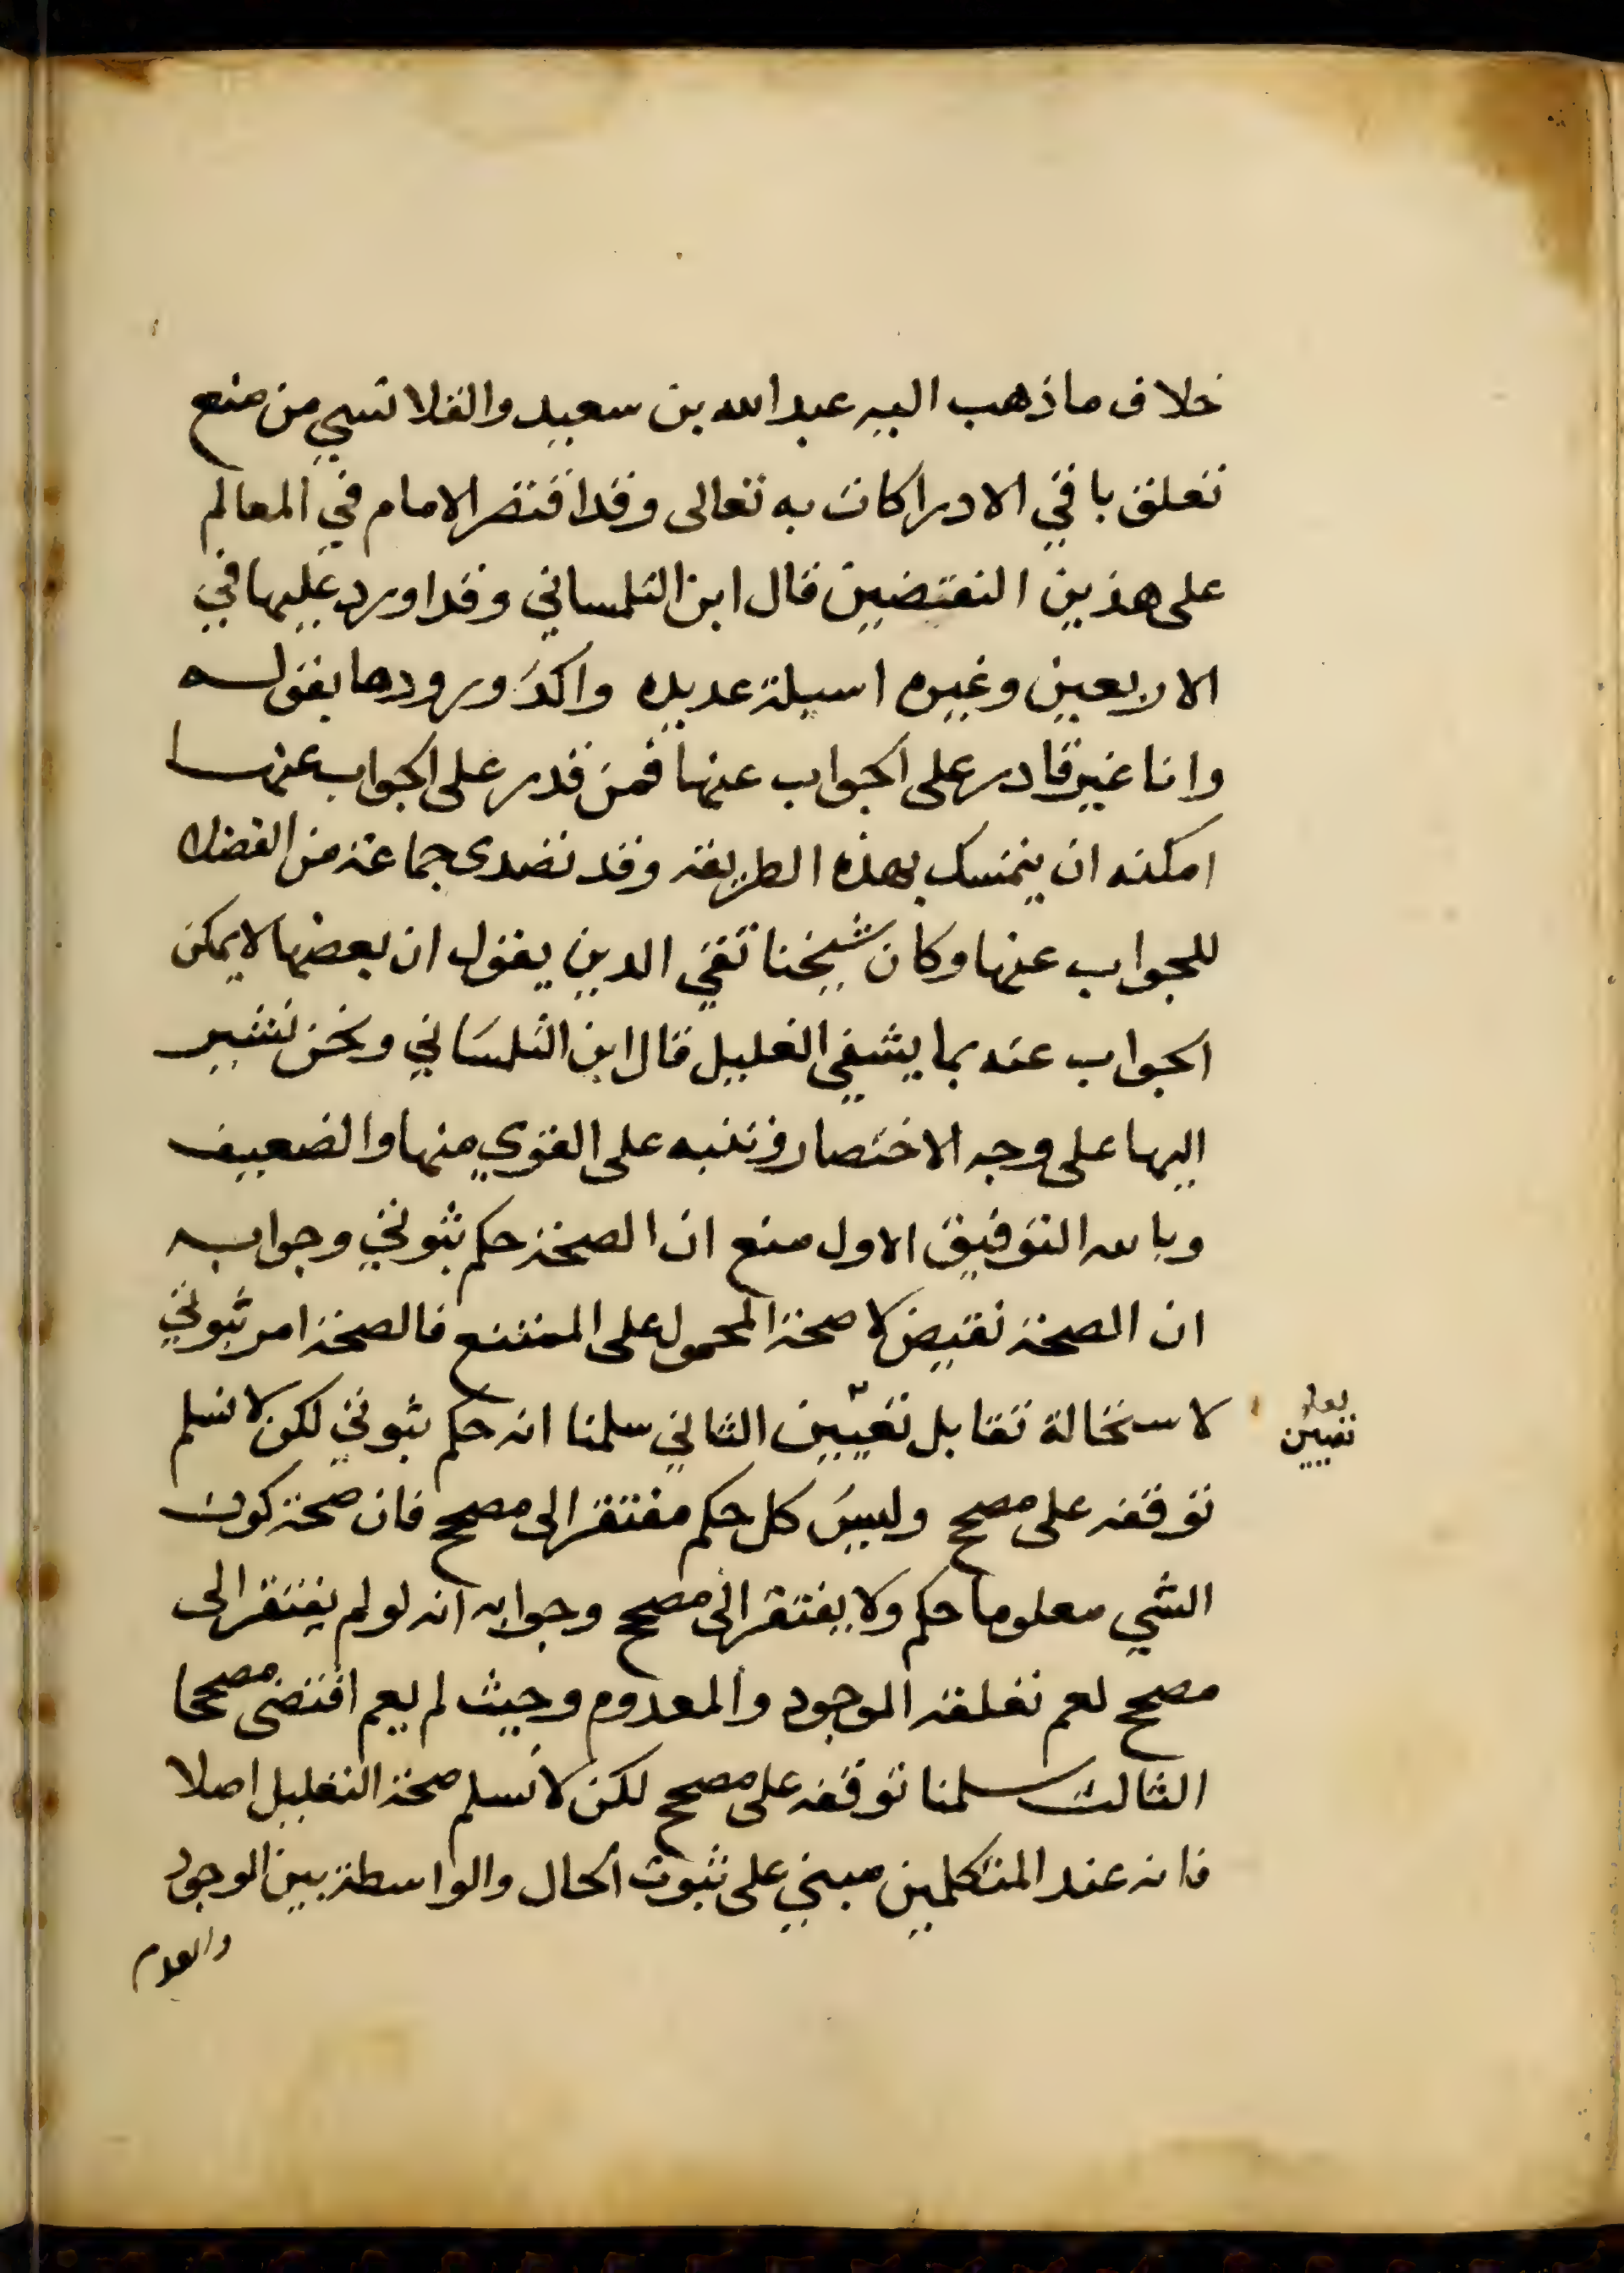 خلاف ما ذهب اليه عبد الله بن سعيد والقلانسي من منع
تعلق باقي الادراكات به تعالى وقد اقتصر الامام في المعالم
على هذين النقيضين قال ابن التلمساني وقد اورد عليها في
الاربعين وغيره اسيلة عديده واكد ورودها بقوله
وانا غير قادر على الجواب عنها فمن قدر على الجواب عنها
امكنه ان يتمسك بهذه الطريقة وقد تصدى جماعة من الفضلا
للجواب عنها وكان شيخنا تقي الدين يقول ان بعضها لا يمكن
الجواب عنه بما يشفي الغليل قال ابن التلمساني ونحن نشير
اليها على وجه الاختصار وننبه على القوي منها والضعيف
وبالله التوفيق الاول منع ان الصحة حكم ثبوتي وجوابه
ان الصحة نقيض لا صحة المحمول على الممتنع فالصحة امر ثبوتي
لاستحالة تقابل تعيين الثاني سلمنا انه حكم ثبوتي لكن لا نسلم
لعله
نفيين
توقفه على مصحح وليس كل حكم مفتقر الى مصحح فان صحة كون
الشي معلوما حكم ولا يفتقر الى مصحح وجوابه انه لو لم يفتقر الى
مصحح لعم تعلقه الموجود والمعدوم وحيث لم يعم اقتضى مصححا
الثالث سلمنا توقفه على مصحح لكن لا نسلم صحة التعليل اصلا
فانه عند المتكلمين مبني على ثبوت الحال والواسطة بين الوجود
والعدم